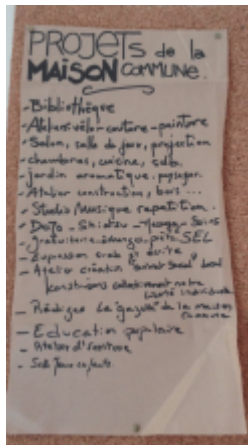 PROJETS de la
MAISON COMMUNE.
- Bibliothèque
- Atelier vélo - couture - peinture
- Salon, salle de jeux, projection
- chambres, cuisine, sdb
- jardin aromatique, potager
- Atelier construction, bois ...
- Studio Musique repetition.
- Dojo - Shiatsu - Massage - Soins
- Gratuiterie, échanges, prêts, SEL
- Expression orale & écrite
- Atelier création
construisons collectivement notre
liberté individuelle
- Rédiger la "gazette" de la maison
commune
- Education populaire
- Atelier d'écriture
- Salle